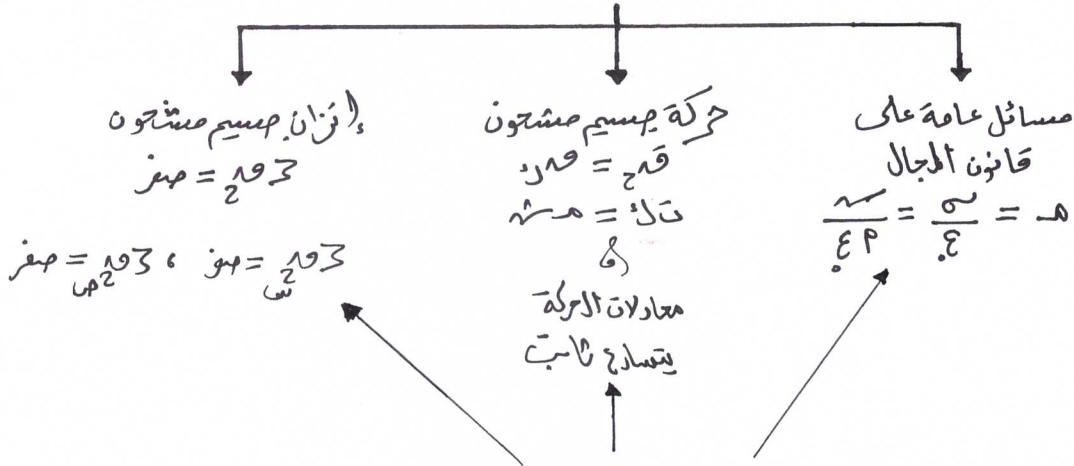 مسائل عامة على
قانون المجال
مـ = σ / ε. = سـ / أ ε.
حركة جسيم مشحون
قح = قك
ت ك = مـ سـ
معادلات الحركة
بتسارع ثابت
إتزان جسيم مشحون
Σ قح = صفر
Σ قح س = صفر ، Σ قح ص = صفر